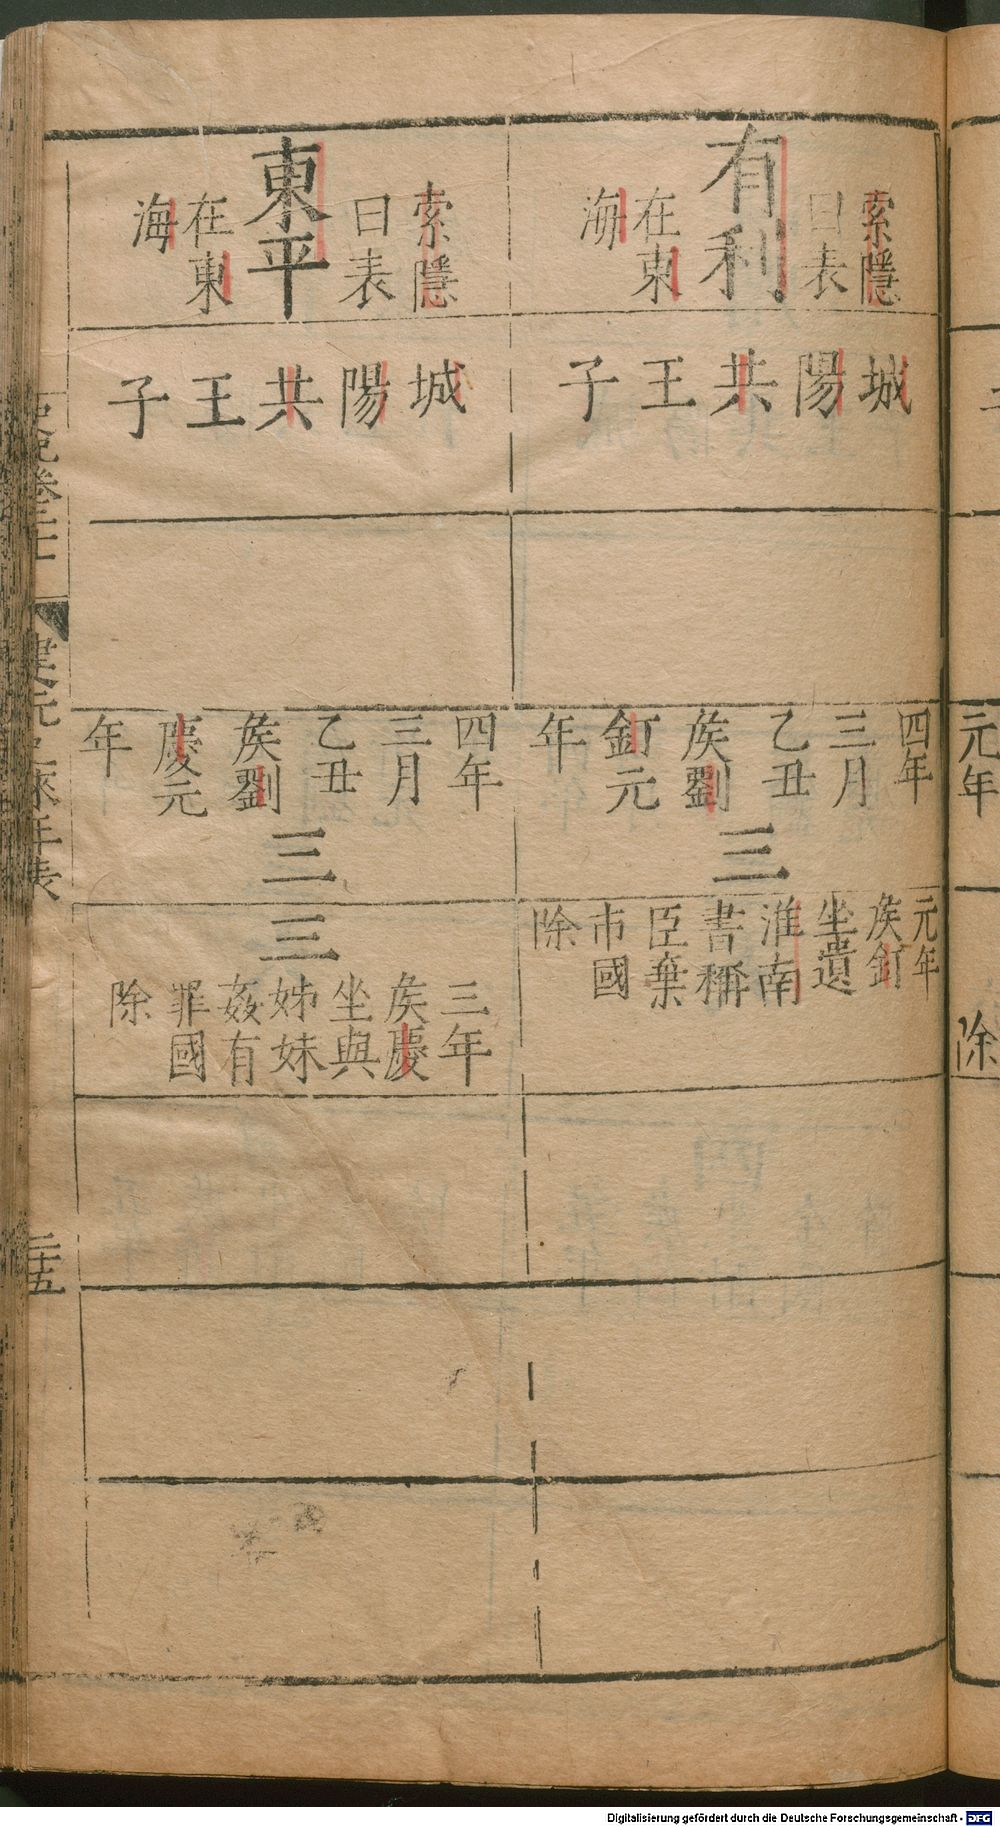 有利
索隱
曰表
在東
海
城陽共王子
四年
三月
乙丑
矦劉
釘元
年
三
元年
矦釘
坐遺
淮南
書稱
臣棄
市國
除
東平
索隱
曰表
在東
海
城陽共王子
四年
三月
乙丑
矦劉
慶元
年
三
三
三年
矦慶
坐與
姊妹
姦有
罪國
除
二十五
元年
除
Digitalisierung gefördert durch die Deutsche Forschungsgemeinschaft - DFG